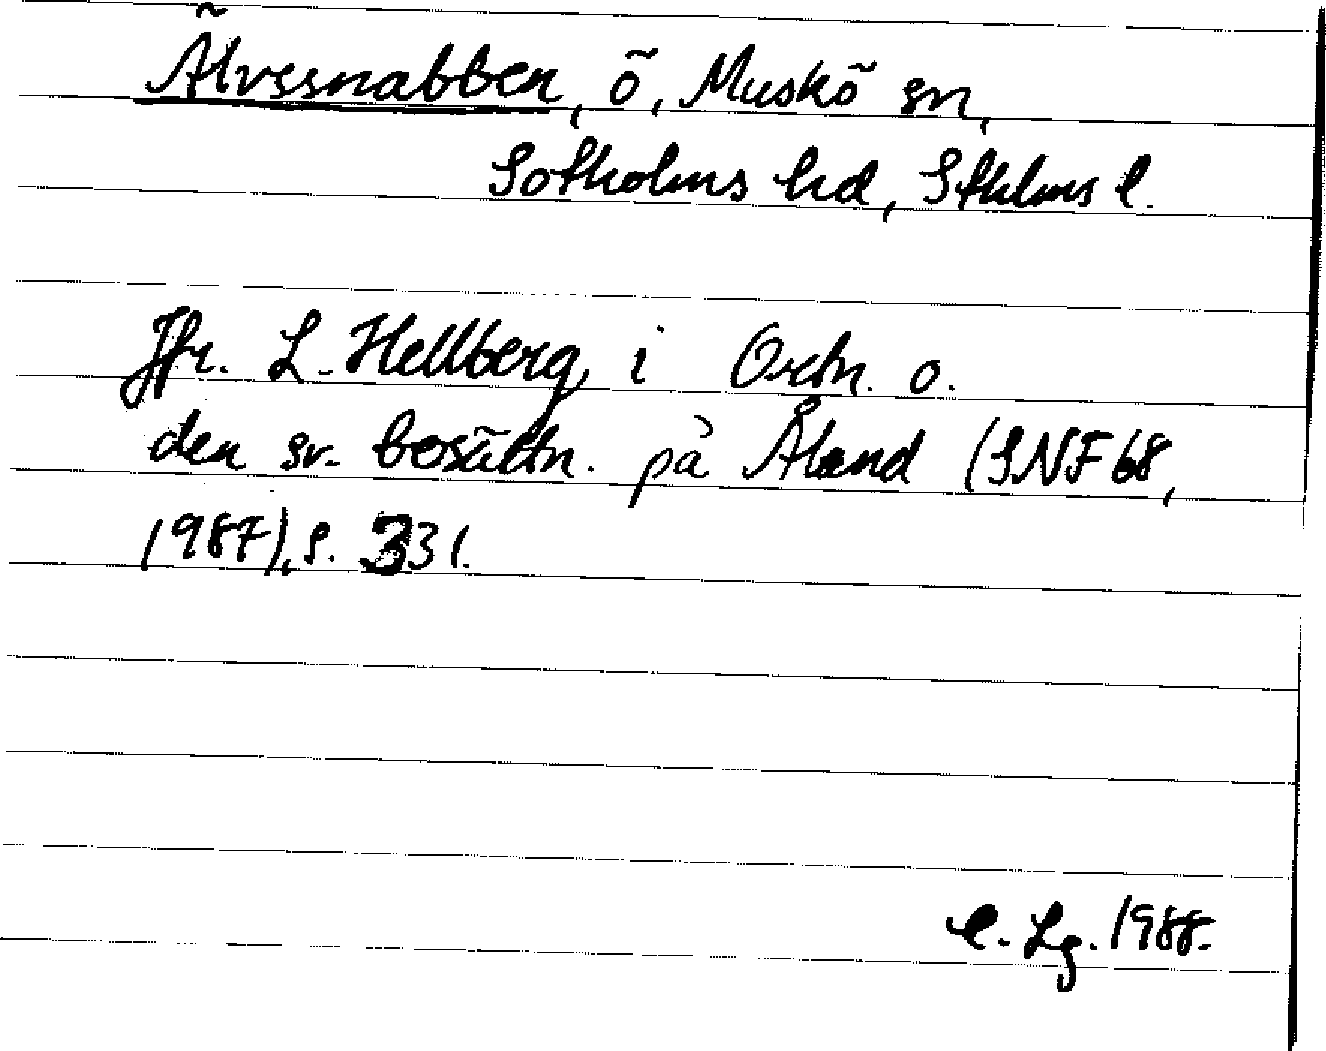 Älvssnabben, ö, Muskö sn,
Sotholms hd, Sthlms l.
Jfr. L. Hellberg i Ortn. o.
den sv. bosättn. på Åland (SNF 68,
1987), s. 331.
C. Lg. 1988.